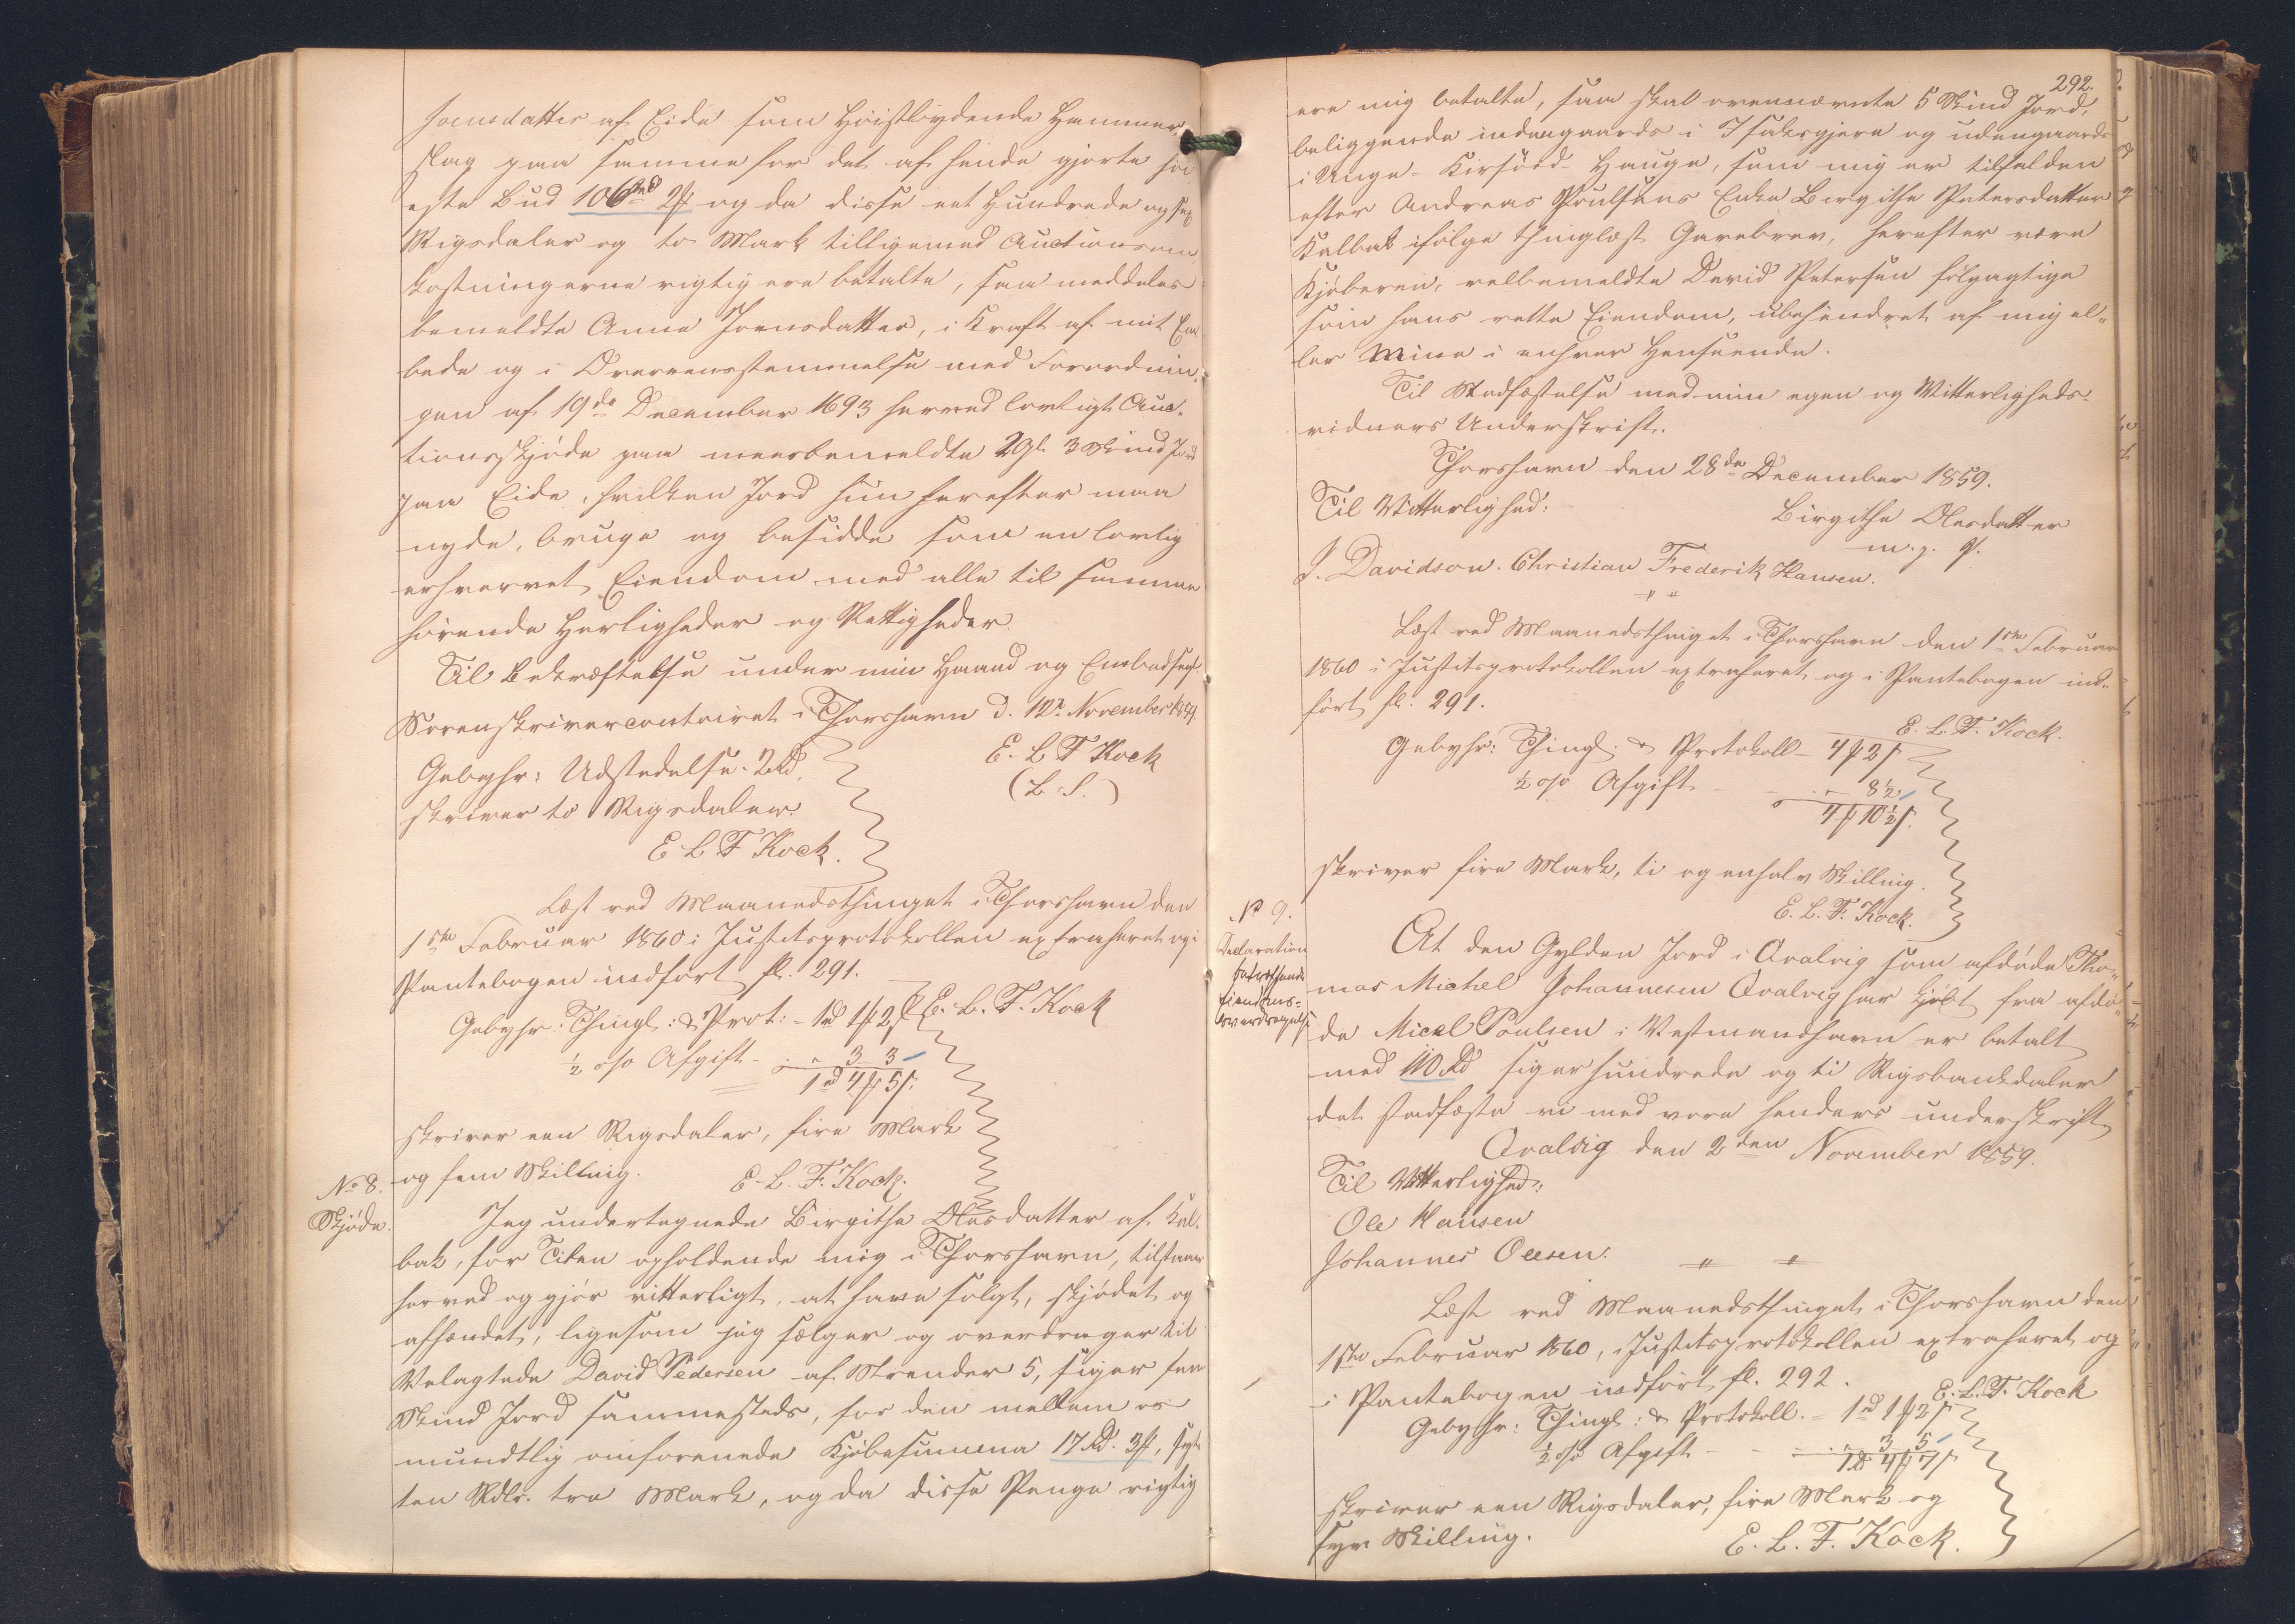 Joensdatter af Eide som Høistbydende Hammer-
slag paa samme for det af hende gjorte høi
este Bud 106rd 2ß og da disse eet Hundrede og sex
Rigsdaler og to Mark tilligemed Auctionsom
kostningerne rigtig ere betalte, saa meddeles
bemeldte Anna Joensdatter, i Kraft af mit Em
bede og i Overeensstemmelse med Forordnin-
gen af 19de December 1693 herved lovligt Auc-
tionsskjøde paa meerbemeldte 2Gl. 3 Skind Jord
paa Eide, hvilken Jord hun herefter maa
nyde, bruge og besidde som en lovlig
erhvervet Eiendom med alle til samme
hørende Herligheder og Rettigheder.
Til Bekræftelse under min Haand og Embedsegl.
Sorenskrivercontoiret i Thorshavn d. 12te November 1859.
E. L F Kock
(L. S.)
Gebyhr: Udstedelse. 2rd.
skriver to Rigsdaler.
E L F Kock.
Læst ved Maanedsthinget i Thorshavn den
1ste Februar 1860 i Justitsprotokollen extraheret og i
Pantebogen indført fl. 291.
E. L. F. Kock
Gebyhr: Thingl: & Prot: - 1rd 1ß 2ß
½ o/o Afgift - . " 3 3
1rd 4ß 5ß.
skriver een Rigsdaler, fire Mark
og fem Skilling. E. L. F. Kock.
No 8.
Skjøde.
Jeg undertegnede Birgithe Olesdatter af Kal-
bak, for Tiden opholdende mig i Thorshavn, tilstaaer
herved og gjør vitterligt, at have solgt, skjødet og
afhændet, ligesom jeg sælger og overdrager til
Velagtede David Pedersen af Strender 5, siger fem
Skind Jord sammesteds, for den mellem os
mundtlig omforenede Kjøbesumma 17 Rd. 3ß, syt
ten Rdlr. tre Mark, og da disse Penge rigtig
292.
ere mig betalte, saa skal ovennævnte 5 Skind Jord,
beliggende indengaards i Isaksgjera og udengaards
i Hauge, som mig er tilfalden
efter Andreas Poulsens Enke Birgithe Petersdatter
Kalbak ifølge thinglæst Gavebrev, herefter være
Kjøberen, velbemeldte David Petersen følgagtige
som hans rette Eiendom, ubehindret af mig el-
ler Mine i enhver Henseende.
Til Stadfæstelse med min egen og Vitterligheds-
vidners Underskrift.
Thorshavn den 28de December 1859.
Til Vitterlighed:
Birgithe Olesdatter
m. p. P.
J. Davidson. Christian Frederik Hansen.
Læst ved Maanedsthinget i Thorshavn den 1ste Februar
1860 i Justitsprotokollen extraheret og i Pantebogen ind-
ført fl. 291.
E. L. F. Kock.
Gebyhr: Thingl. & Protokoll - 4ß 2ß
½ o/o Afgift - - . " 8½
4ß 10½ß.
skriver fire Mark, ti og enhalv Skilling.
E. L. F. Kock.
No 9.
Declaration
betreffende
Eiendoms-
overdragelse
At den Gylden Jord i Qvalvig som afdøde Tho-
mas Michel Johannesen Qvalvig har kjøbt fra afdø-
de Micel Poulsen i Vestmandhavn er betalt
med 110 Rd siger hundrede og ti Rigsbankdaler
det stadfæste vi med vore henders underskrift
Qvalvig den 2den November 1859.
Til Vitterlighed:
Ole Hansen
Johannes Olesen.
Læst ved Maanedsthinget i Thorshavn den
1ste Februar 1860, i Justitsprotokollen extraheret og
i Pantebogen indført fl. 292.
E. L. F. Kock
Gebyhr: Thingl: & Protokoll. - 1rd 1ß 2ß
½ o/o Afgift - - . " 3 5
1rd 4ß 7ß
skriver een Rigsdaler, fire Mark og
syv Skilling.
E. L. F. Kock.